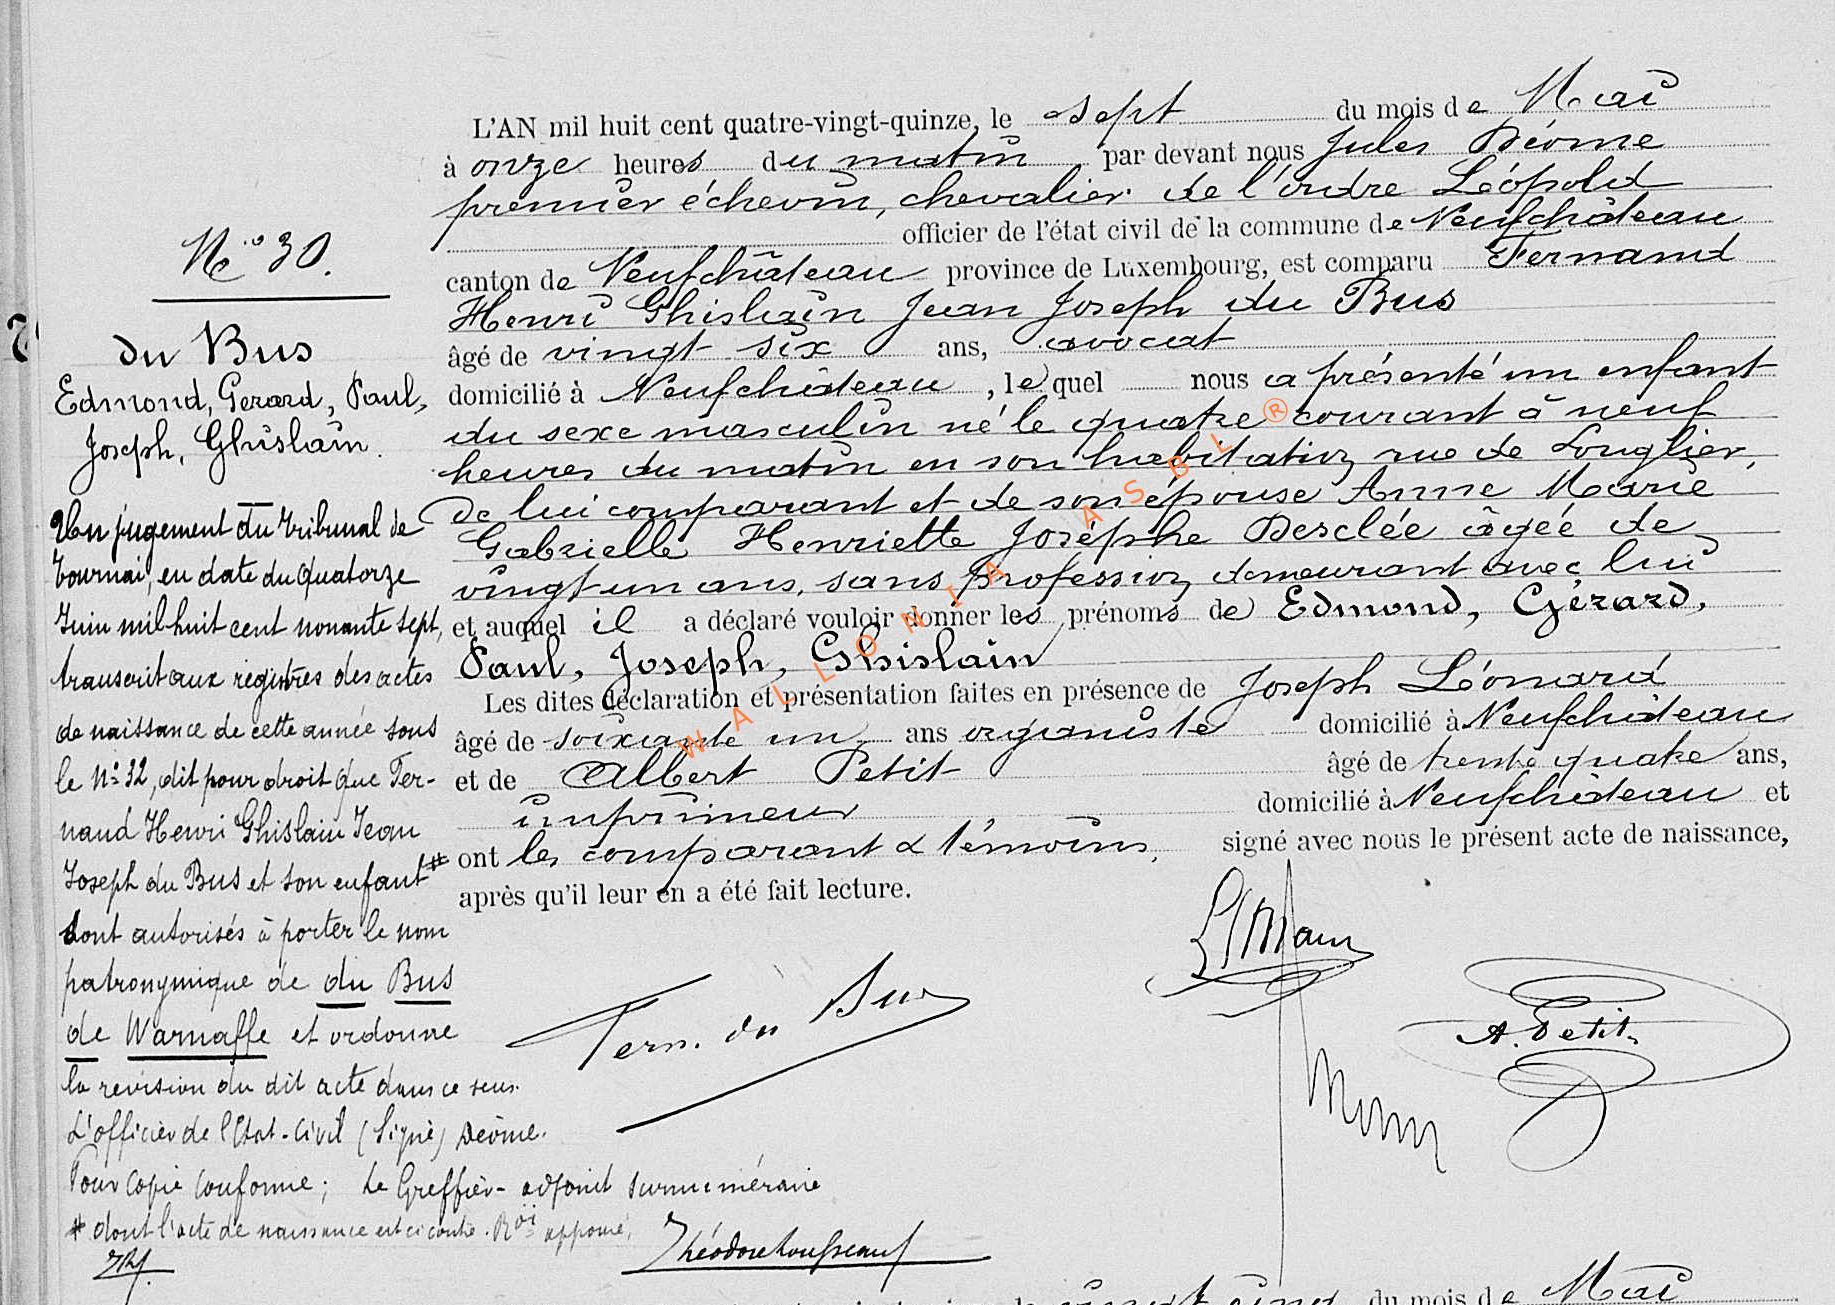 L'AN mil huit cent quatre-vingt-quinze, le sept du mois de Mai
à onze heures du matin par devant nous Jules Déome
premier échevin, chevalier de l'ordre Léopold
officier de l'état civil de la commune de Neufchâteau
canton de Neufchâteau province de Luxembourg, est comparu Fernand
Henri Ghislain Jean Joseph du Bus
âgé de vingt six ans, avocat
domicilié à Neufchâteau, lequel nous a présenté un enfant
du sexe masculin né le quatre courant à neuf
heures du matin en son habitation rue de Longlier,
de lui comparant et de son épouse Anne Marie
Gabrielle Henriette Josèphe Desclée âgée de
vingt un ans, sans profession, demeurant avec lui
et auquel il a déclaré vouloir donner les prénoms de Edmond, Gérard,
Paul, Joseph, Ghislain
Les dites déclaration et présentation faites en présence de Joseph Léonard
âgé de soixante un ans organiste domicilié à Neufchâteau
et de Albert Petit âgé de trente quatre ans,
imprimeur domicilié à Neufchâteau et
ont les comparant & témoins, signé avec nous le présent acte de naissance,
après qu'il leur en a été fait lecture.
Fern. du Bus
A. Petit
N° 30.
du Bus
Edmond, Gerard, Paul,
Joseph, Ghislain.
Un jugement du tribunal de
Tournai, en date du quatorze
Juin mil huit cent nonante sept,
transcrit aux registres des actes
de naissance de cette année sous
le N° 32, dit pour droit que Fer-
nand Henri Ghislain Jean
Joseph du Bus et son enfant #
sont autorisés à porter le nom
patronymique de du Bus
de Warnaffe et ordonne
la revision du dit acte dans ce sens.
L'officier de l'Etat-Civil (Signé) Déome.
Pour copie conforme; Le Greffier-adjoint surnuméraire
# dont l'acte de naissance est ci contre. approuvé.
WALLONIA ASBL ®
du mois de Mai